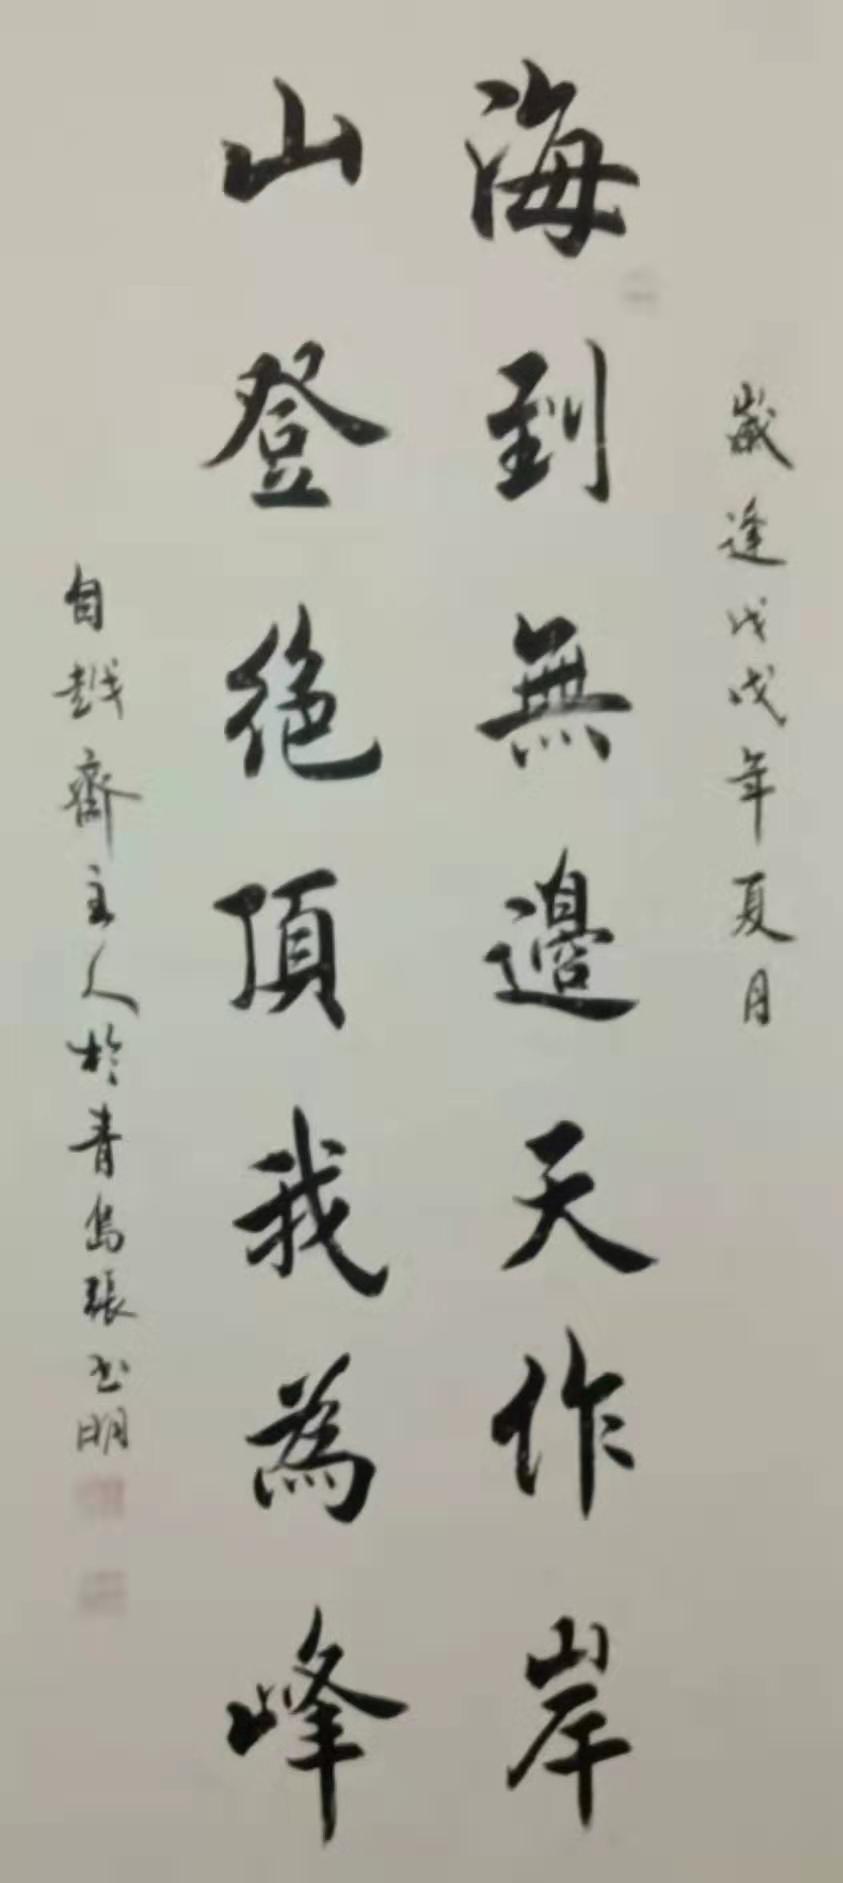 歲逢戊戌年夏月
海到無邊天作岸
山登絕頂我為峰
自越齋主人於青島張玉明